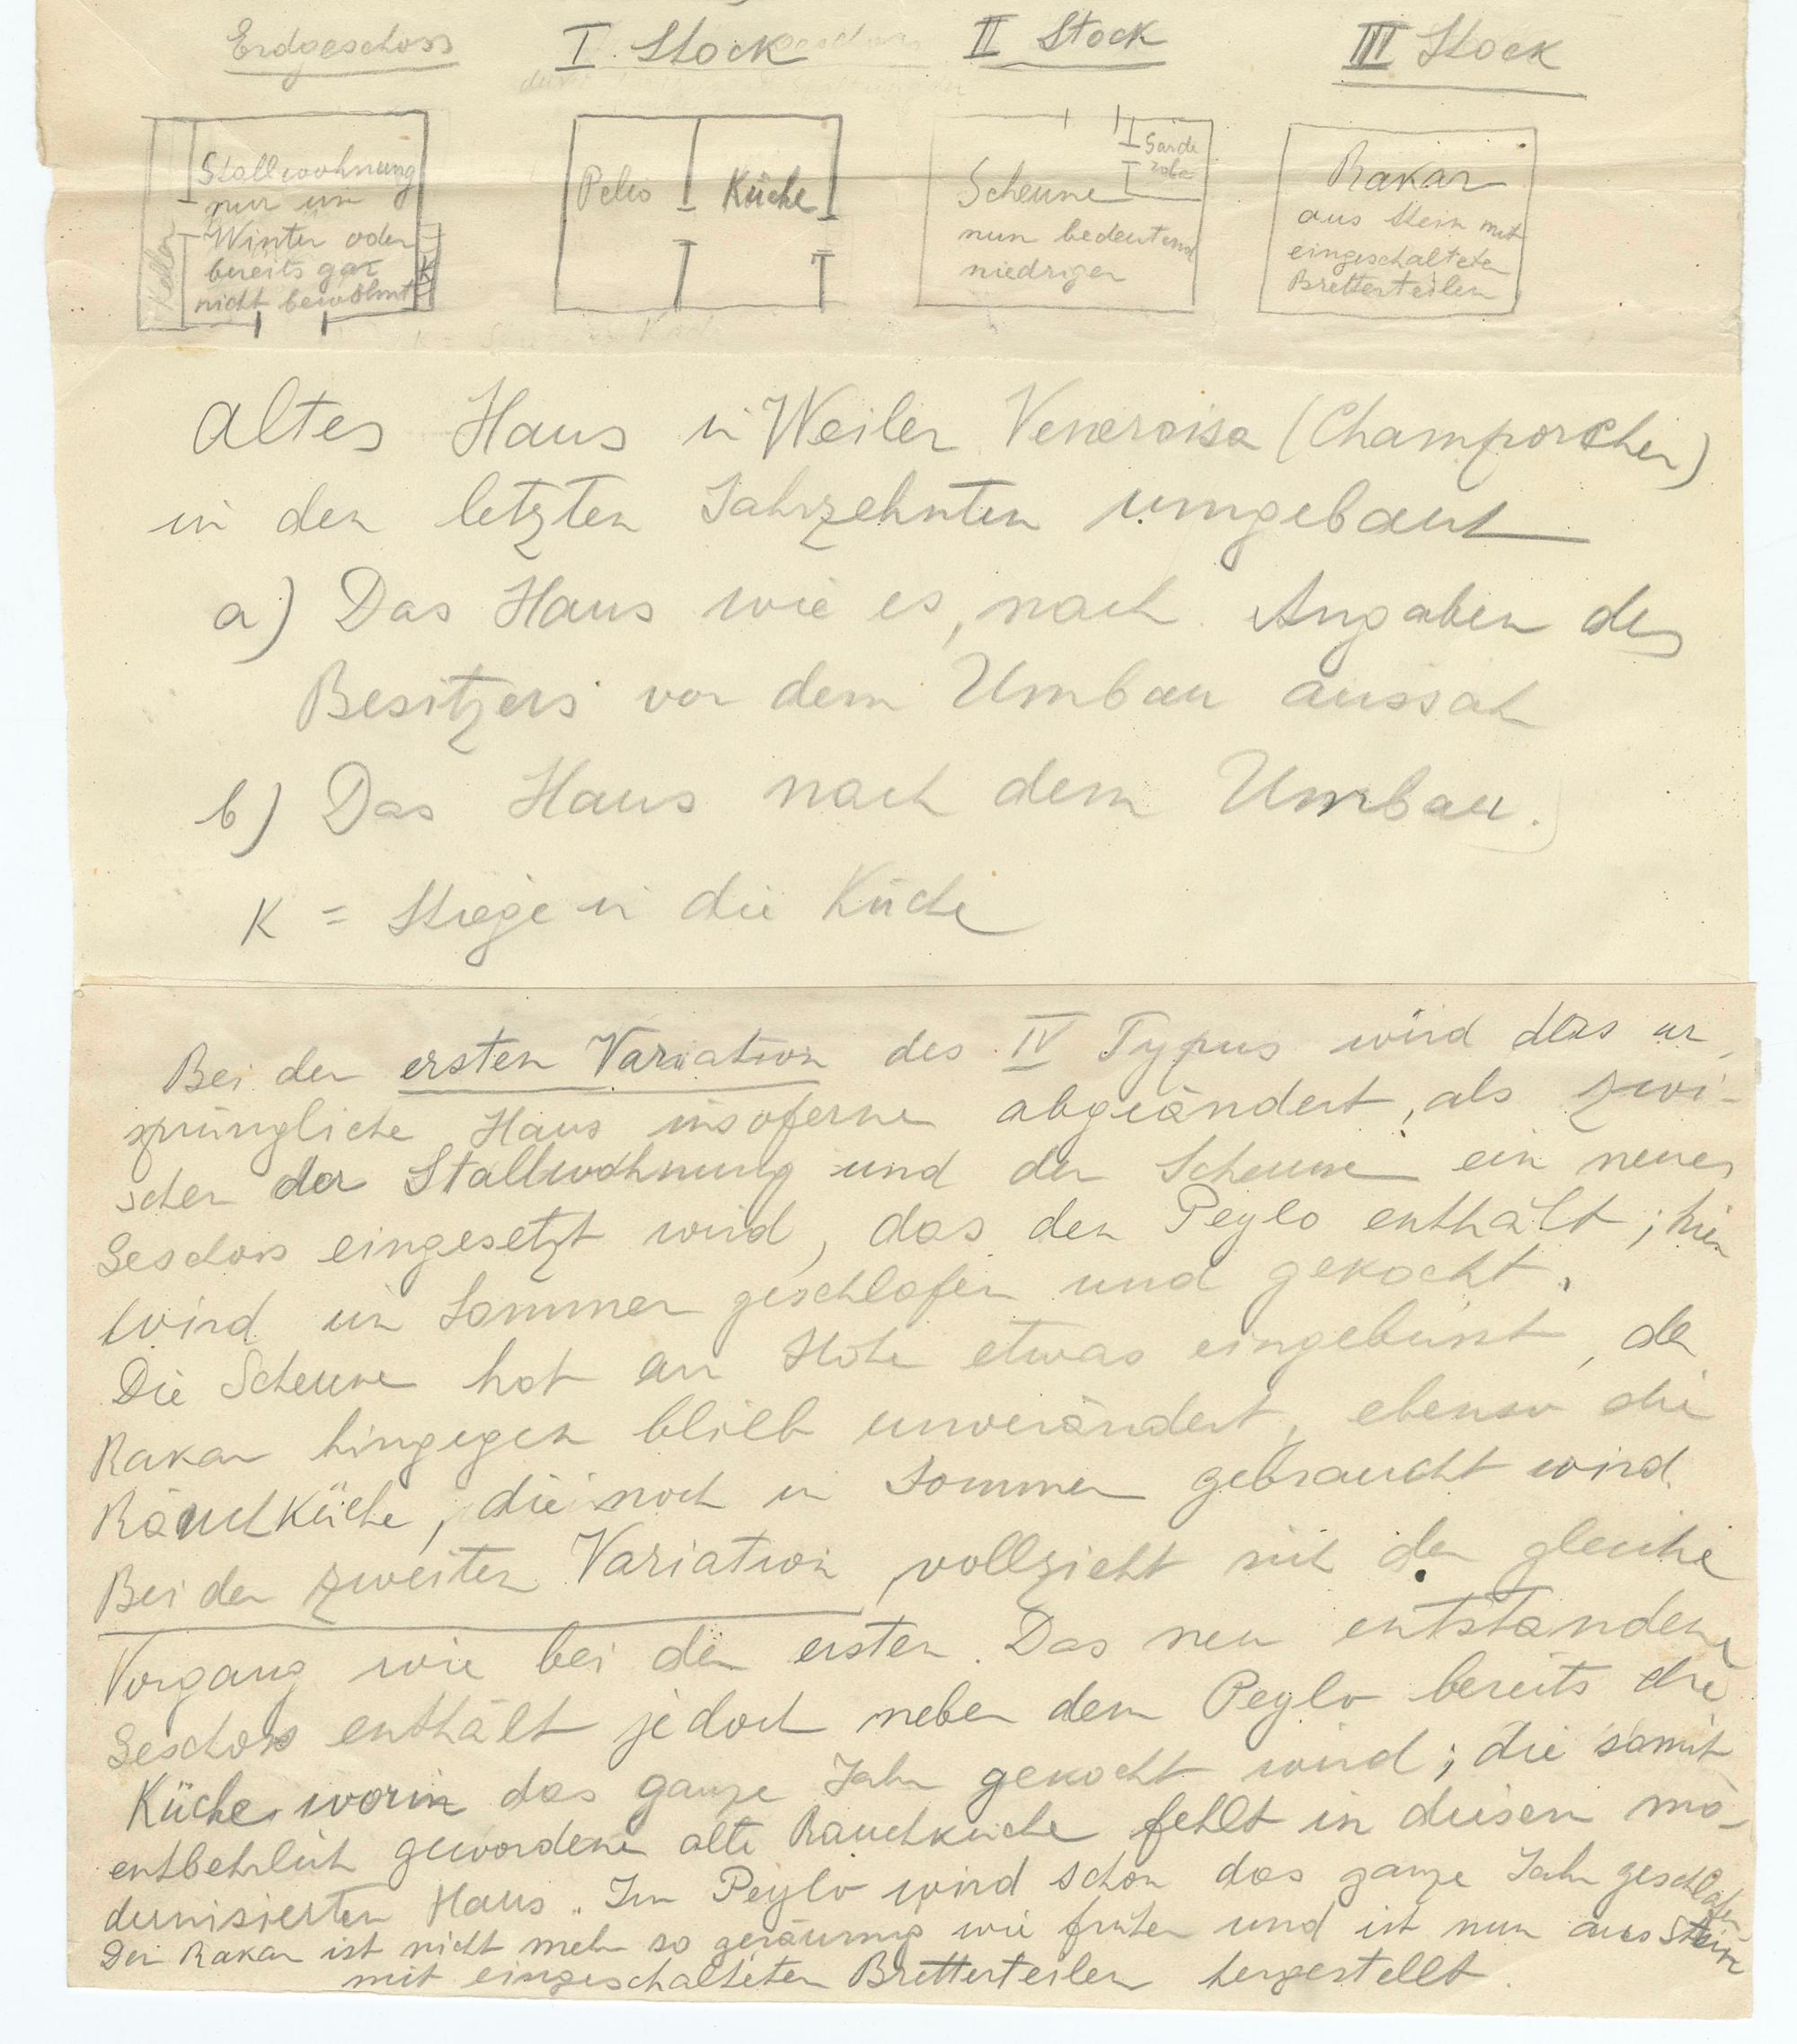 Erdgeschoss
I. Stock
II Stock
III Stock
Keller
Stallwohnung
nur im
Winter oder
bereits gar
nicht bewohnt
K
Pelio
Küche
Garde
robe
Scheune
nun bedeutend
niedriger
Rakar
aus Stein mit
eingeschalteten
Bretterteilen
Altes Haus in Weiler Veneroisa (Champorcher)
in den letzten Jahrzehnten umgebaut
a) Das Haus wie es, nach Angaben des
Besitzers vor dem Umbau aussah
b) Das Haus nach dem Umbau.
K = Stiege in die Küche
Bei der ersten Variation des IV Typus wird das ur-
sprüngliche Haus insoferne abgeändert, als zwi-
schen der Stallwohnung und der Scheune ein neues
Geschoss eingesetzt wird, das den Peylo enthält; hier
wird im Sommer geschlafen und gekocht.
Die Scheune hat an Höhe etwas eingebüsst, der
Rakar hingegen blieb unverändert, ebenso die
Rauchküche, die noch im Sommer gebraucht wird
Bei der zweiten Variation vollzieht sich der gleiche
Vorgang wie bei der ersten. Das neu entstandene
Geschoss enthält jedoch neben dem Peylo bereits die
Küche worin das ganze Jahr gekocht wird; die somit
entbehrlich gewordene alte Rauchküche fehlt in diesem mo-
dernisierten Haus. Im Peylo wird schon das ganze Jahr geschlafen
Der Rakar ist nicht mehr so geräumig wie früher und ist nun aus Stein
mit eingeschalteten Bretterteilen hergestellt.